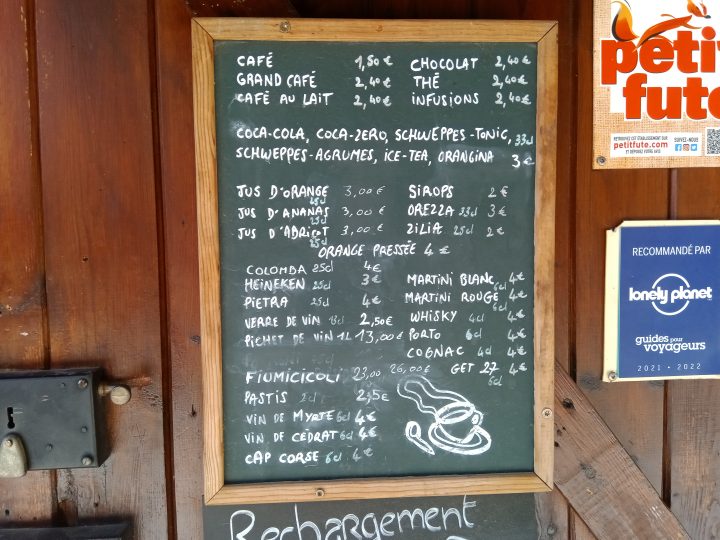 CAFÉ 1,50€ CHOCOLAT 2,40€
GRAND CAFÉ 2,40€ THÉ 2,40€
CAFÉ AU LAIT 2,40€ INFUSIONS 2,40€
COCA-COLA, COCA-ZERO, SCHWEPPES-TONIC, 33cl
SCHWEPPES-AGRUMES, ICE-TEA, ORANGINA 3€
JUS D'ORANGE 25cl 3,00€ SIROPS 2€
JUS D'ANANAS 25cl 3,00€ OREZZA 33cl 3€
JUS D'ABRICOT 25cl 3,00€ ZILIA 25cl 2€
ORANGE PRESSÉE 4€
COLOMBA 25cl 4€
HEINEKEN 25cl 3€ MARTINI BLANC 6cl 4€
PIETRA 25cl 4€ MARTINI ROUGE 6cl 4€
VERRE DE VIN 2,50€ WHISKY 4cl 4€
PICHET DE VIN 1L 13,00€ PORTO 6cl 4€
COGNAC 4cl 4€
FIUMICICOLI 23,00 26,00€ GET 27 6cl 4€
PASTIS 2cl 2,5€
VIN DE MYRTE 6cl 4€
VIN DE CÉDRAT 6cl 4€
CAP CORSE 6cl 4€
Rechargement
petit
fute
RETROUVEZ CET ÉTABLISSEMENT SUR
petitfute.com
ET DEPOSEZ VOTRE AVIS
SUIVEZ-NOUS
RECOMMANDÉ PAR
lonely planet
guides pour
voyageurs
2021 • 2022